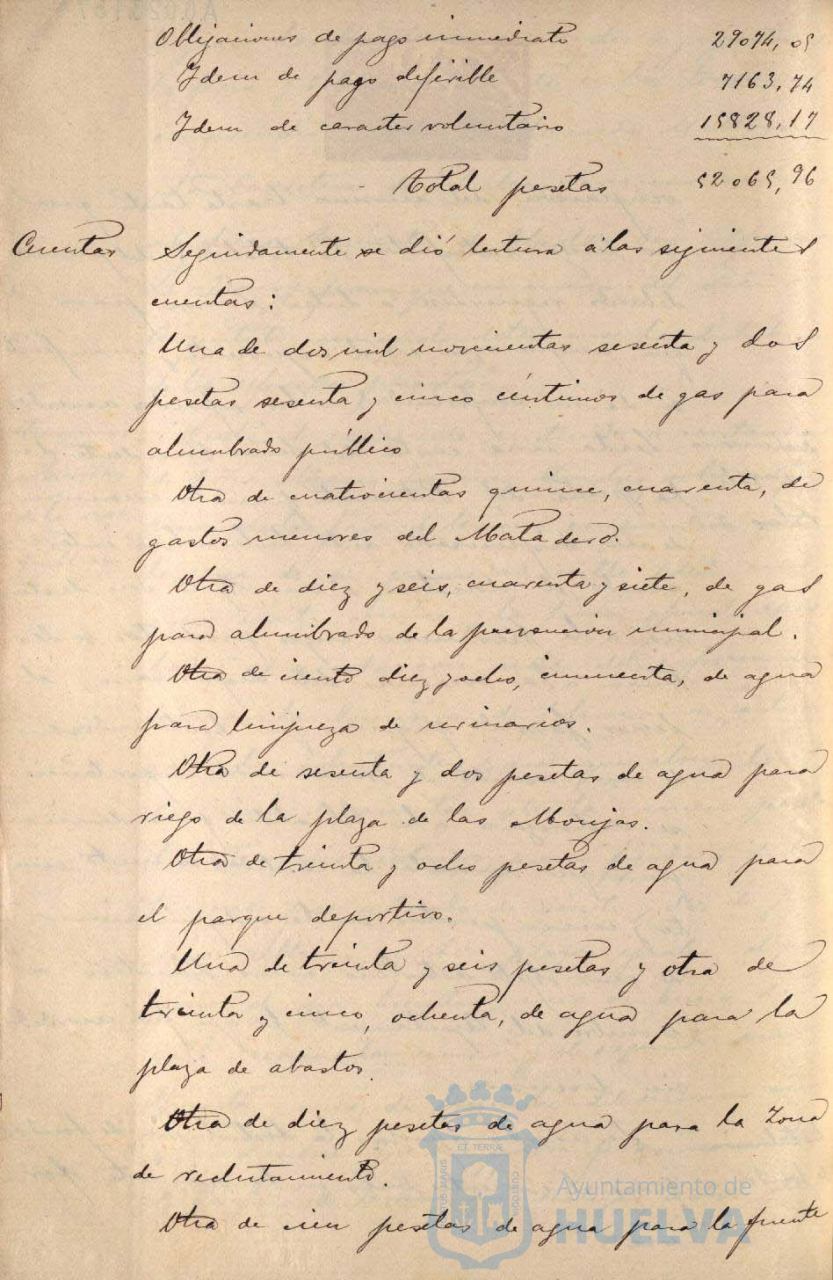 Obligaciones de pago inmediato 29074,05
Idem de pago deferible 7163,74
Idem de caracter voluntario 15828,17
total pesetas 52065,96
Cuentas Seguidamente se dió lectura á las siguientes
cuentas:
Una de dos mil novecientas sesenta y dos
pesetas sesenta y cinco céntimos de gas para
alumbrado público
Otra de cuatrocientas quince, cuarenta, de
gastos menores del Matadero.
Otra de diez y seis, cuarenta y siete, de gas
para alumbrado de la prevencion municipal.
Otra de ciento diez y ocho, cincuenta, de agua
para limpieza de urinarios.
Otra de sesenta y dos pesetas de agua para
riego de la plaza de las Monjas.
Otra de treinta y ocho pesetas de agua para
el parque deportivo.
Una de treinta y seis pesetas y otra de
treinta y cinco, ochenta, de agua para la
plaza de abastos.
Otra de diez pesetas de agua para la Zona
de reclutamiento.
Otra de cien pesetas de agua para la fuente
Ayuntamiento de
HUELVA